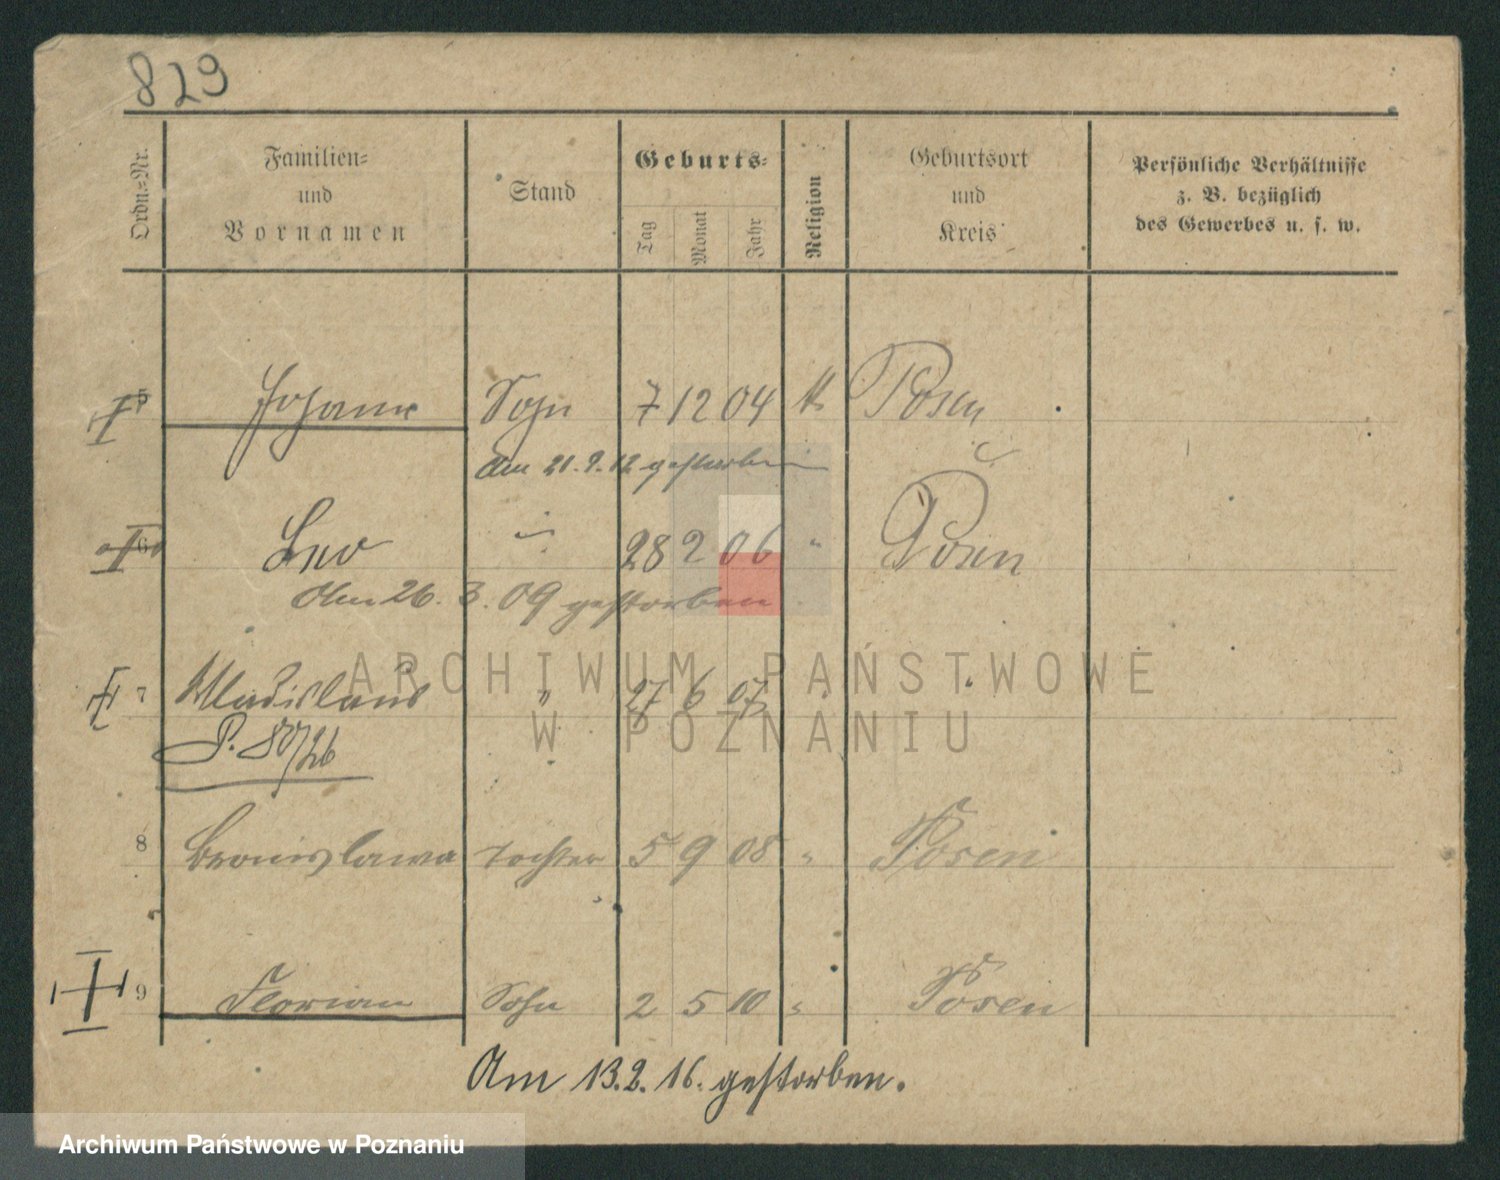 829
Ordn.=Nr.
Familien=
und
Vornamen
Stand
Geburts=
Tag
Monat
Jahr
Religion
Geburtsort
und
Kreis
Persönliche Verhältnisse
z. B. bezüglich
des Gewerbes u. s. w.
5 Johann Sohn 7 12 04 k Posen
Am 21. 9. 12 gestorben
6 Leo " 28 2 06 " Posen
Am 26. 3. 09 gestorben
7 Wladislaus " 27 6 07 "
ARCHIWUM PAŃSTWOWE
W POZNANIU
8 Bronislawa Tochter 5 9 08 " Posen
9 Florian Sohn 2 5 10 " Posen
Am 13. 2. 16. gestorben.
Archiwum Państwowe w Poznaniu